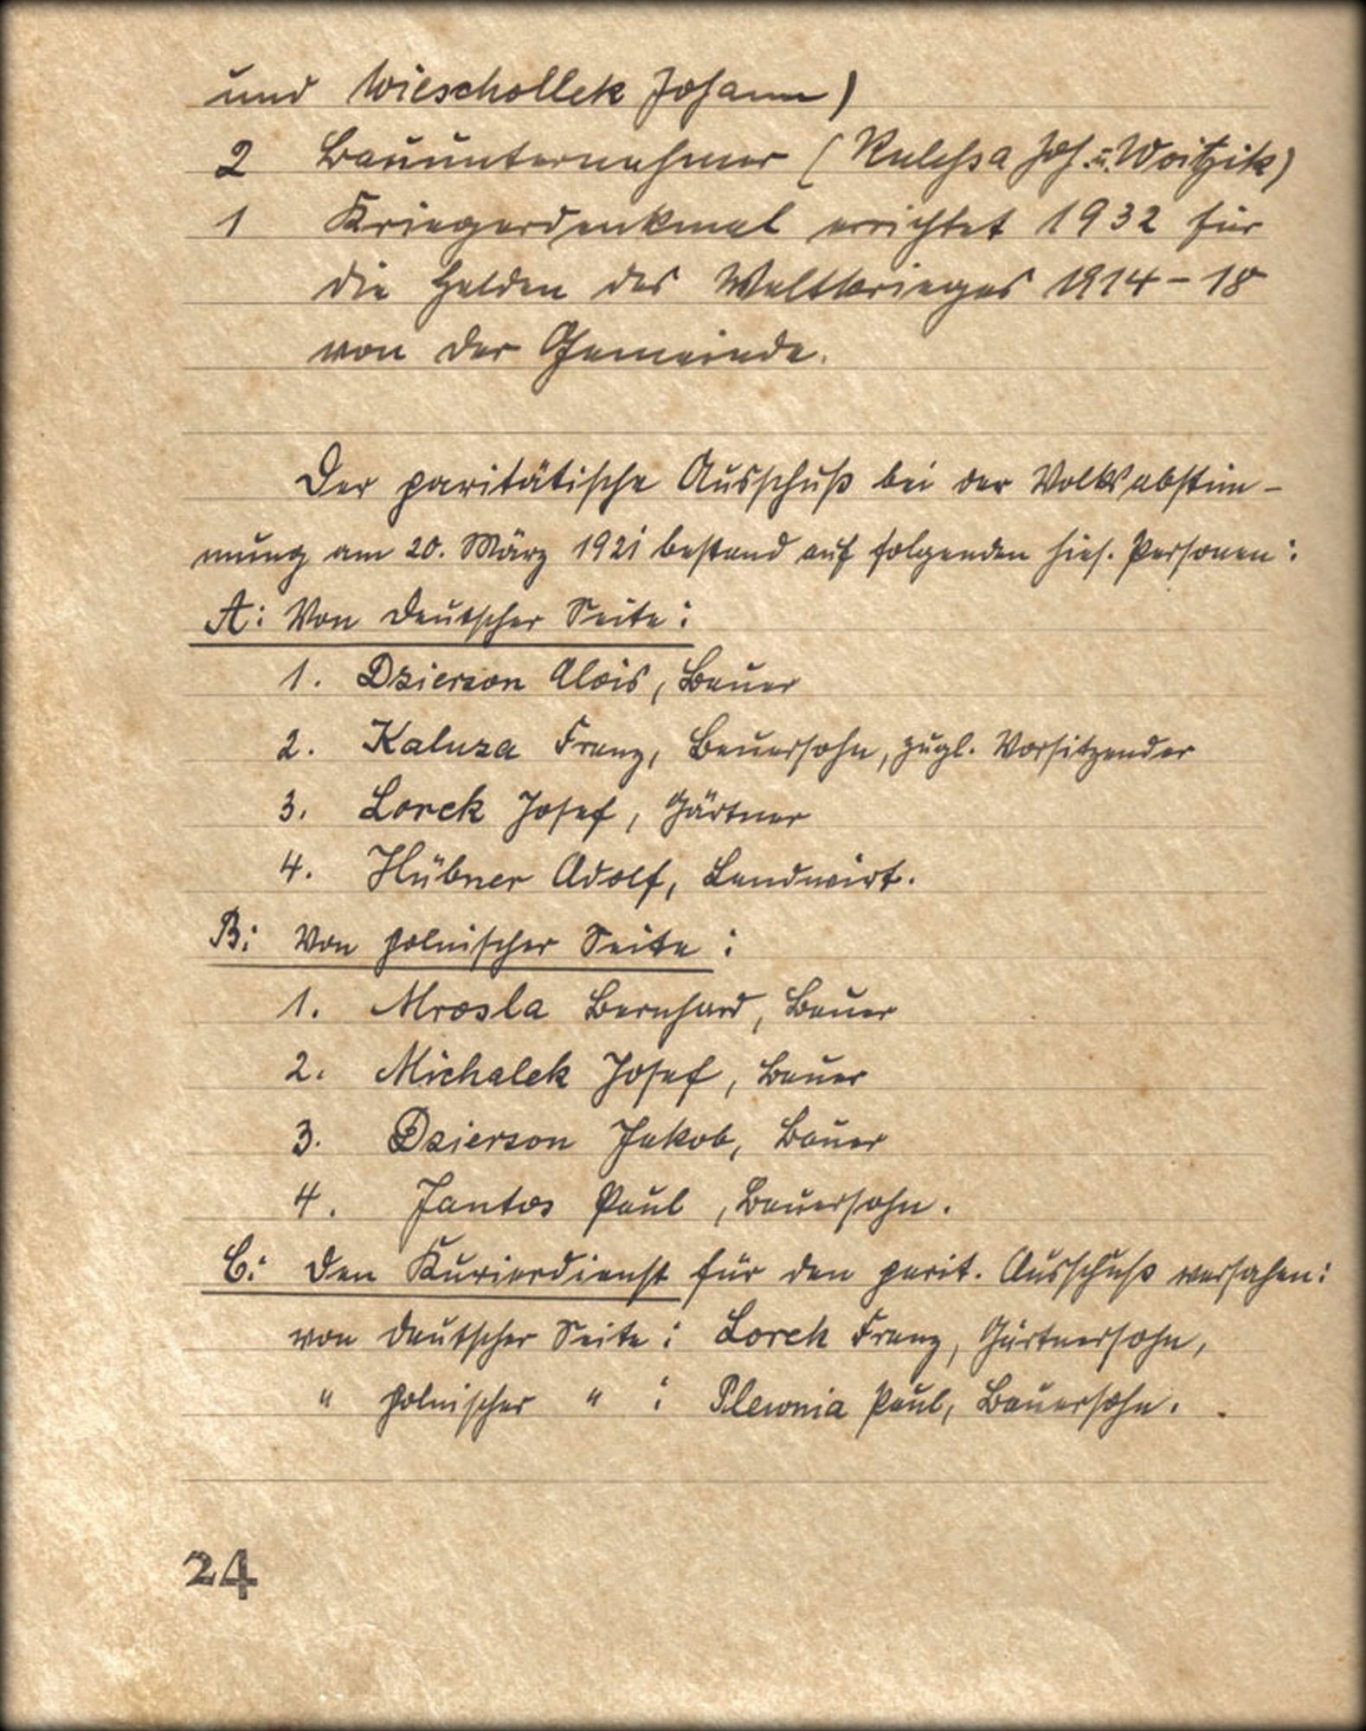 und Wieschollek Johann)
2 Bauunternehmer (Kulessa Joh. u. Woitzik)
1 Kriegerdenkmal errichtet 1932 für
die Helden des Weltkrieges 1914-18
von der Gemeinde.
Der paritätische Ausschuß bei der Volksabstim-
mung am 20. März 1921 bestand auf folgenden hies. Personen:
A: Von deutscher Seite:
1. Dzierzon Alois, Bauer
2. Kaluza Franz, Bauersohn, zugl. Vorsitzender
3. Lorek Josef, Gärtner
4. Hübner Adolf, Landwirt.
B: Von polnischer Seite:
1. Mrosla Bernhard, Bauer
2. Michalek Josef, Bauer
3. Dzierzon Jakob, Bauer
4. Jantos Paul, Bauersohn.
C: Den Kurierdienst für den parit. Ausschuß versahen:
von deutscher Seite: Lorek Franz, Gärtnersohn,
" polnischer " : Plewnia Paul, Bauersohn.
24